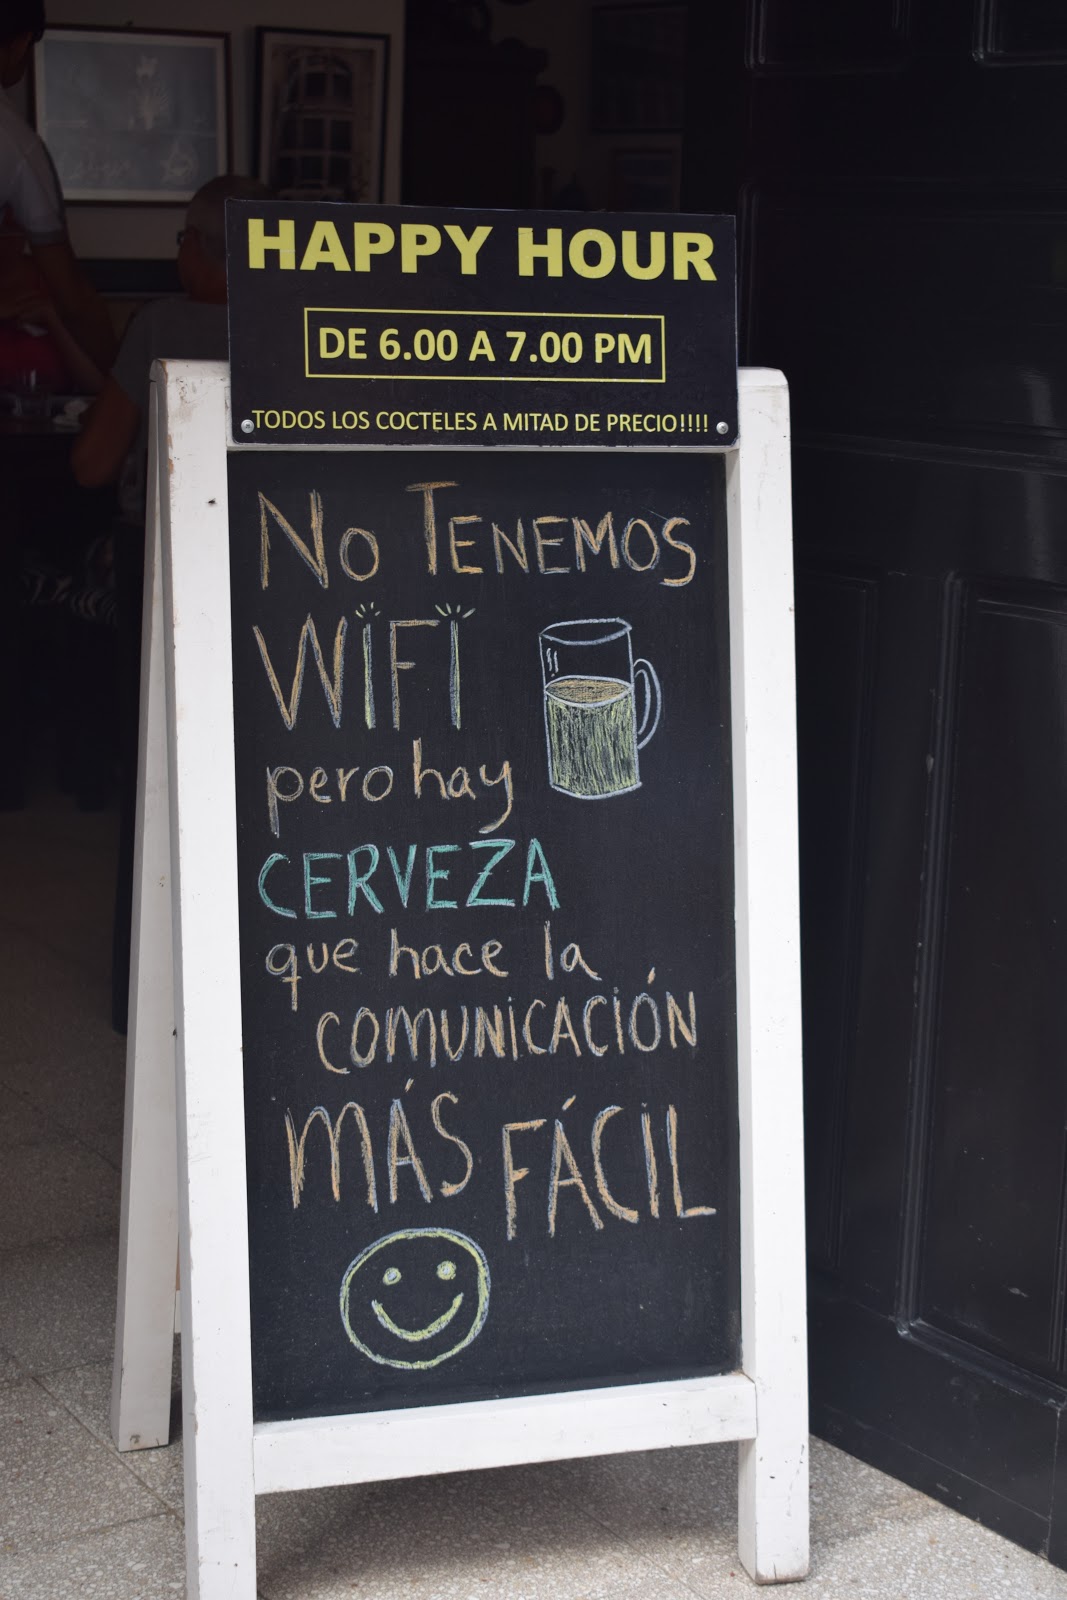 HAPPY HOUR
DE 6.00 A 7.00 PM
TODOS LOS COCTELES A MITAD DE PRECIO!!!!
No TENEMOS
WiFi
pero hay
CERVEZA
que hace la
COMUNiCACiÓN
MÁS FÁCIL